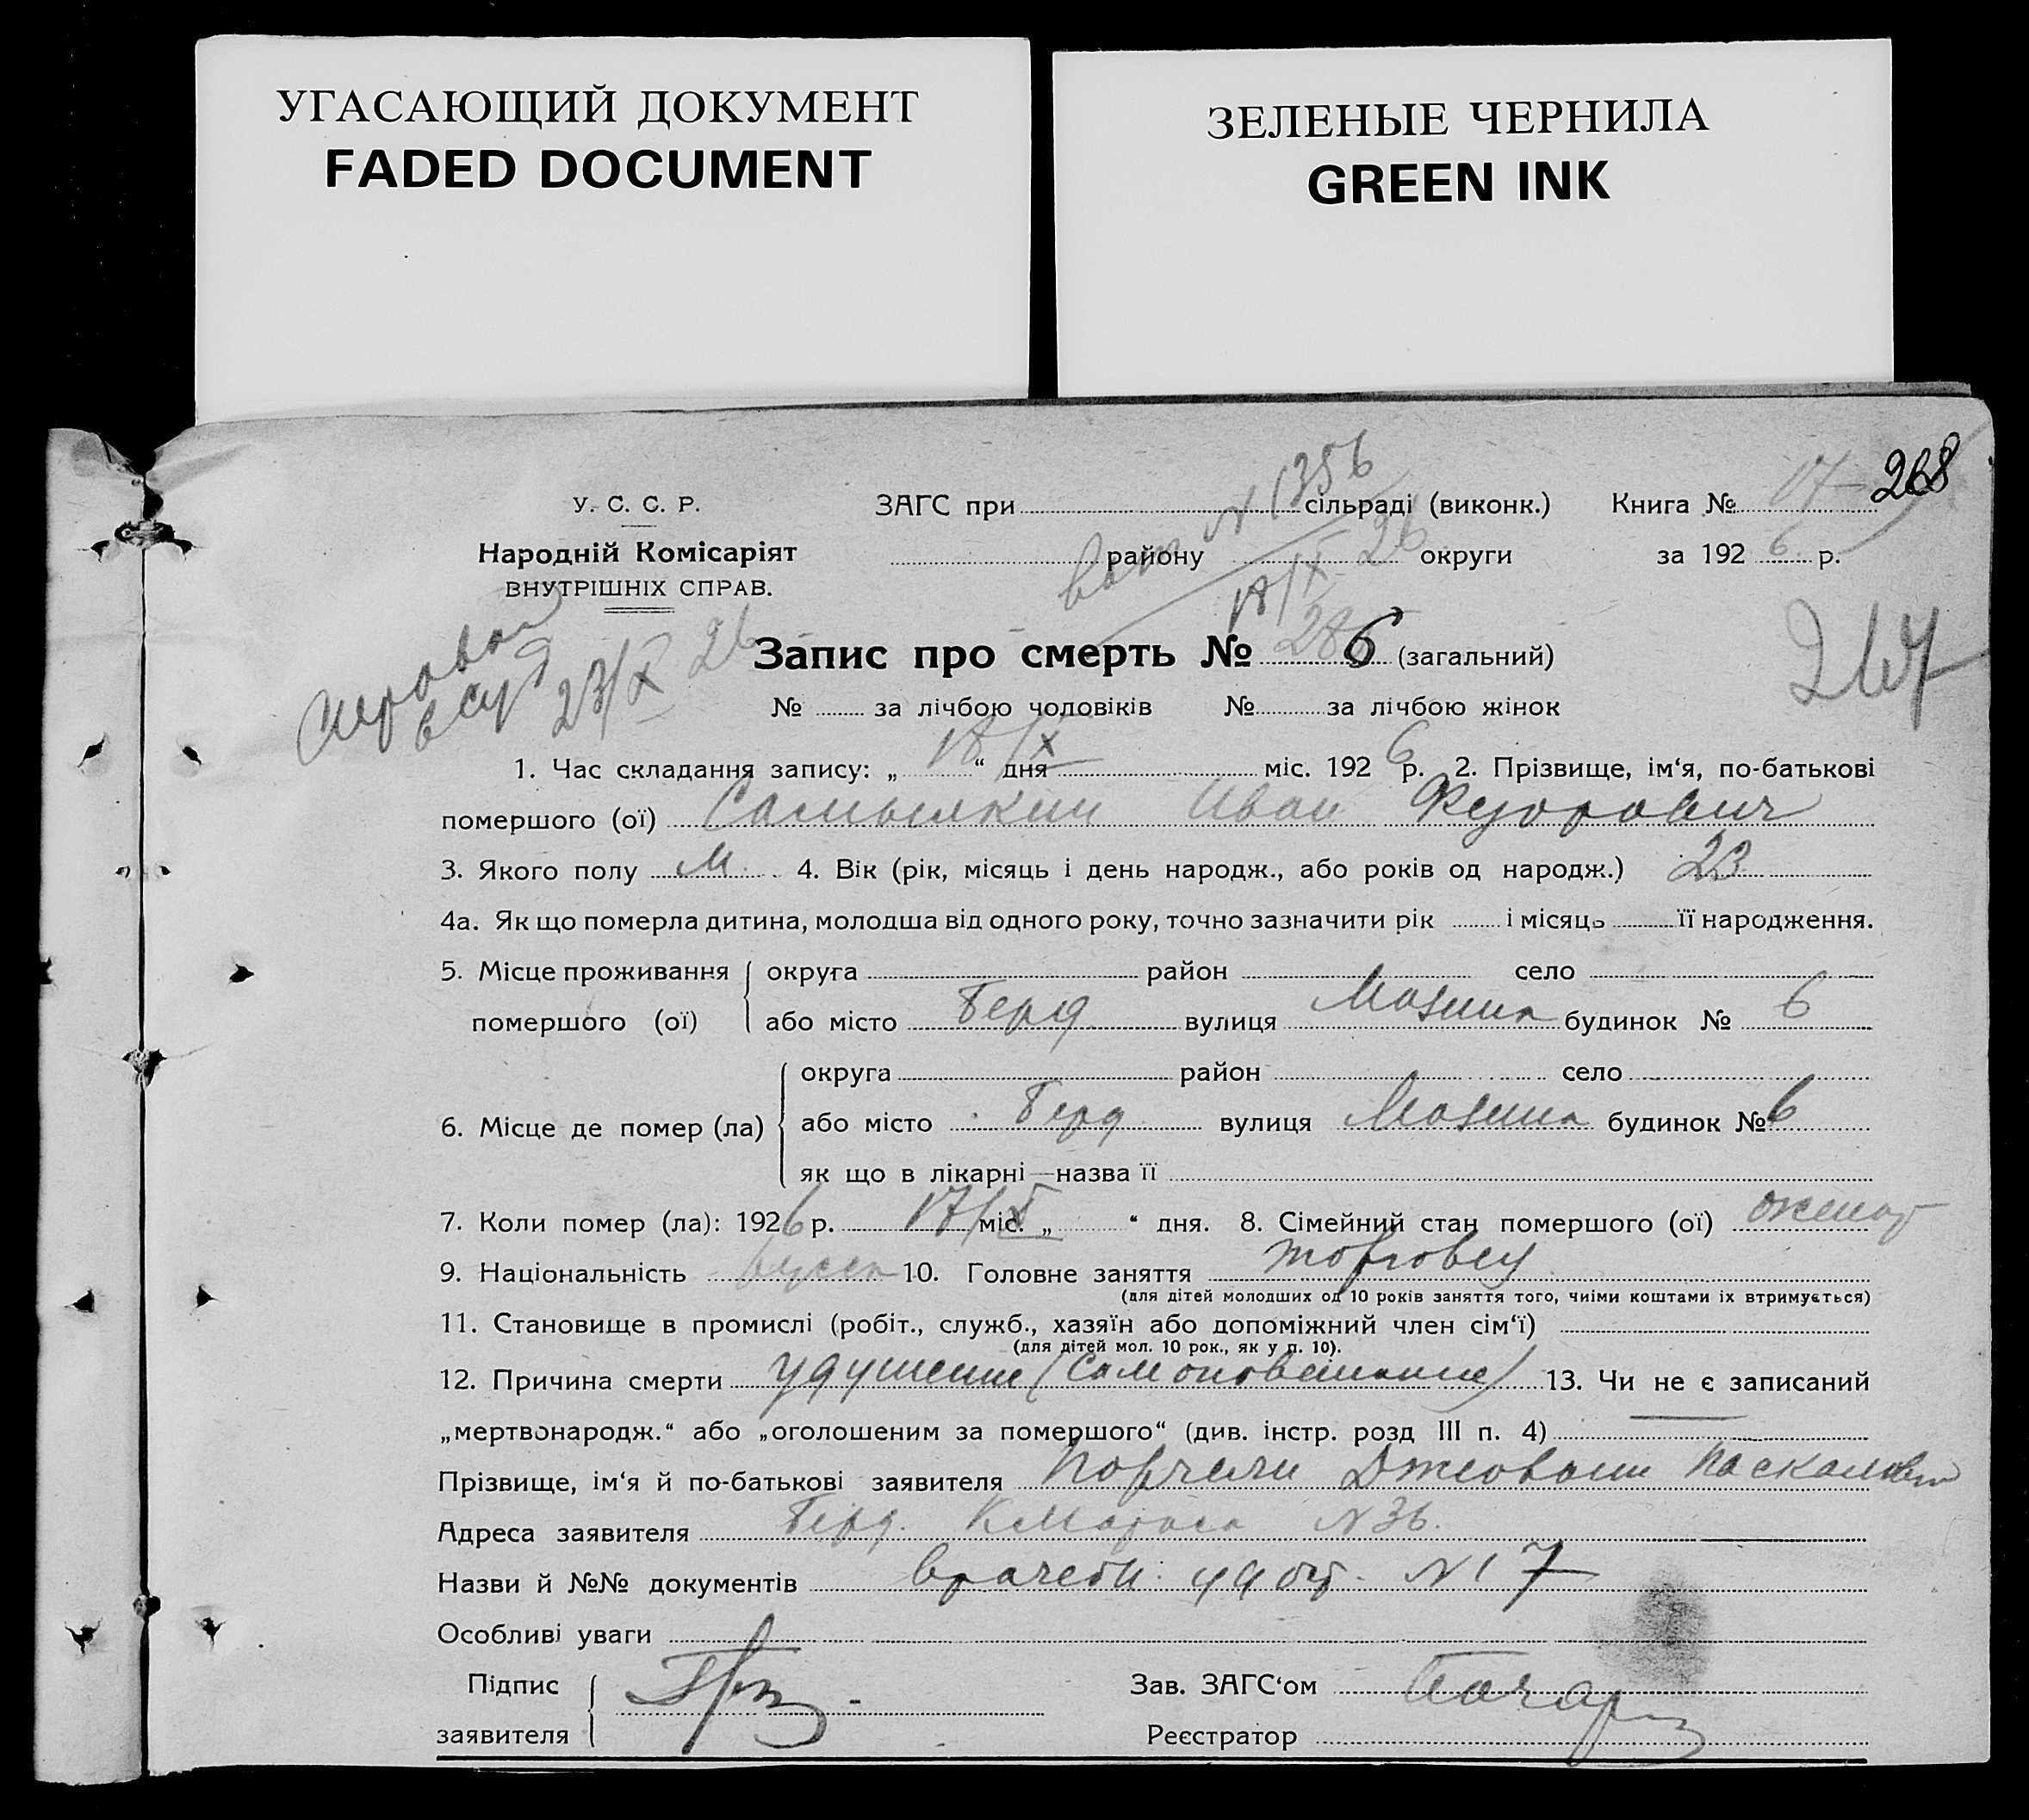 УГАСАЮЩИЙ ДОКУМЕНТ
FADED DOCUMENT
ЗЕЛЕНЫЕ ЧЕРНИЛА
GREEN INK
У. С. С. Р.
Народній Комісаріят
ВНУТРІШНІХ СПРАВ.
ЗАГС при сільраді (виконк.) Книга № 17 268
району округи за 1926 р.
N 1356
18/X 26
23/X 26
267
Запис про смерть № 286 (загальний)
№ за лічбою чоловіків № за лічбою жінок
1. Час складання запису: „ 18/X “ дня міс. 1926 р. 2. Прізвище, ім‘я, по-батькові
помершого (ої) Самылкин Иван Федорович
3. Якого полу М. 4. Вік (рік, місяць і день народж., або років од народж.) 23
4а. Як що померла дитина, молодша від одного року, точно зазначити рік і місяць її народження.
5. Місце проживання помершого (ої) округа район село
або місто Берд вулиця Мазина будинок № 6
6. Місце де помер (ла) округа район село
або місто Берд вулиця Мазина будинок № 6
як що в лікарні—назва її
7. Коли помер (ла): 1926 р. 17/X міс. „ “ дня. 8. Сімейний стан помершого (ої) женат
9. Національність русск 10. Головне заняття торговец
(для дітей молодших од 10 років заняття того, чиїми коштами їх втримується)
11. Становище в промислі (робіт., служб., хазяїн або допоміжний член сім‘ї)
(для дітей мол. 10 рок., як у п. 10).
12. Причина смерти удушение (самоповешание) 13. Чи не є записаний
„мертвонародж.“ або „оголошеним за помершого“ (див. інстр. розд III п. 4)
Прізвище, ім‘я й по-батькові заявителя Порчели Джовани Паскалевич
Адреса заявителя Берд. К Маркса N 36.
Назви й №№ документів врачебн. удост. N 17
Особливі уваги
Підпис заявителя
Зав. ЗАГС‘ом
Реєстратор